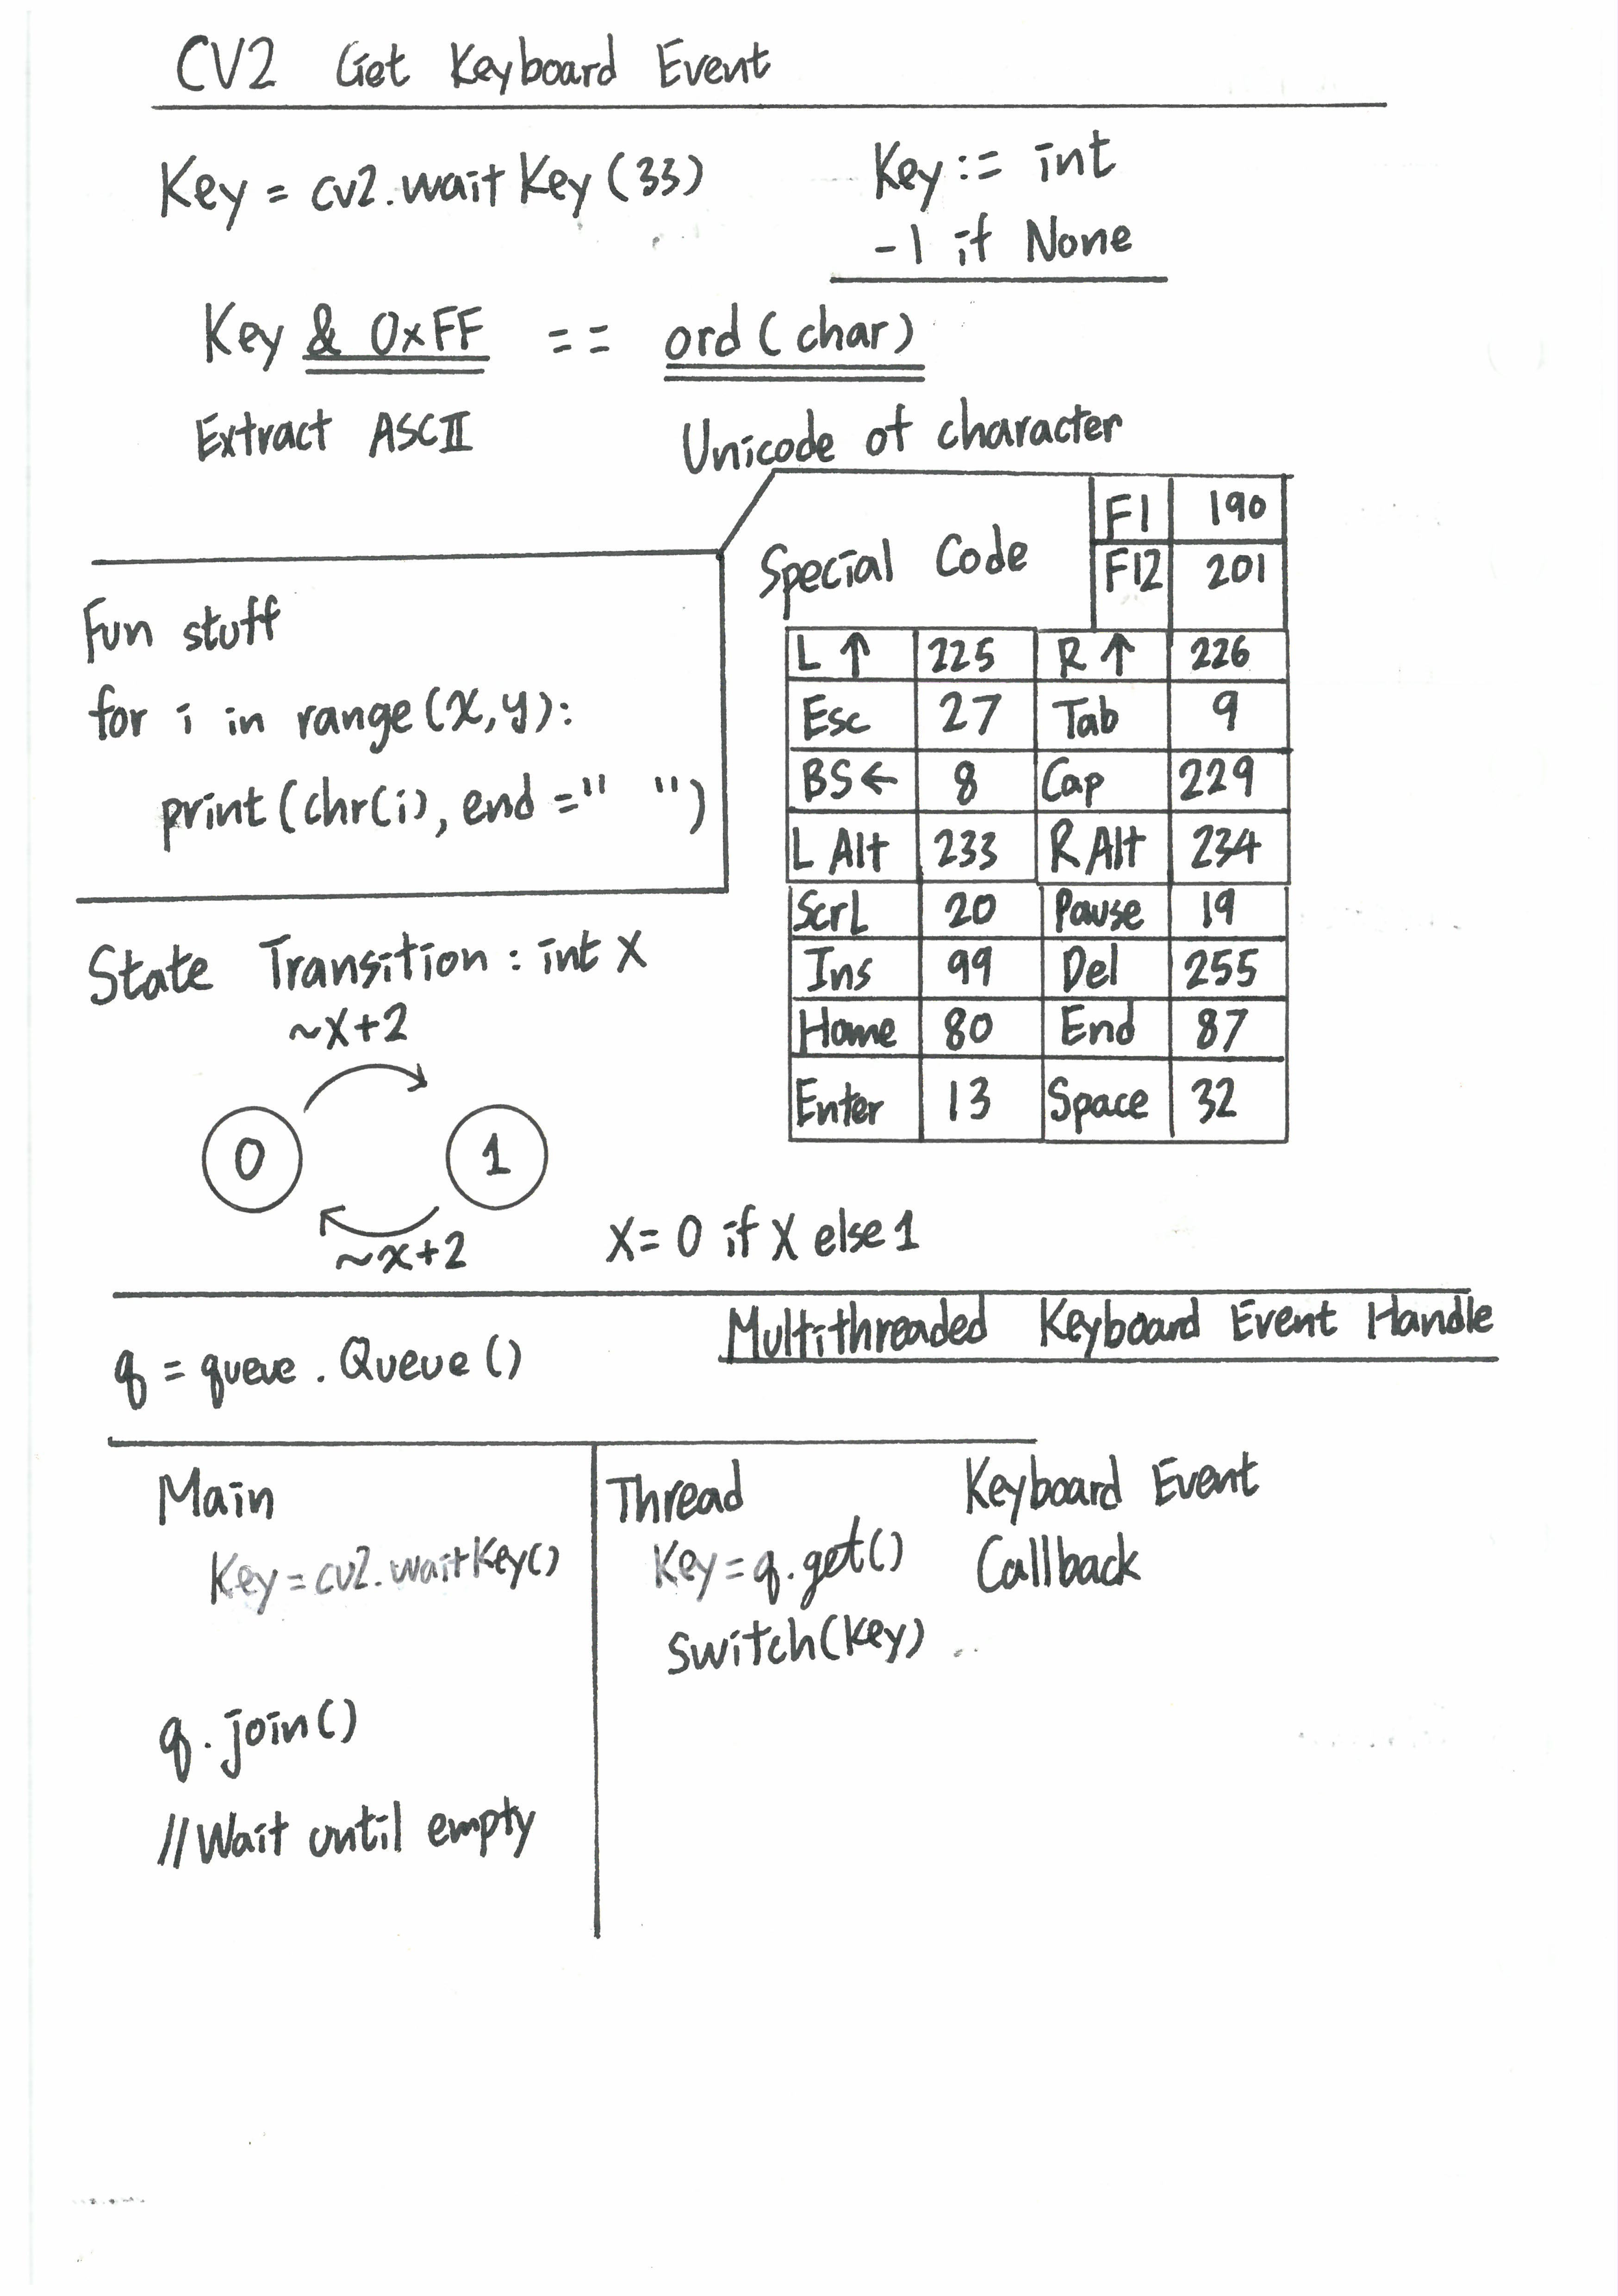 CV2 Get Keyboard Event
Key = cv2.waitKey(33)
Key := int
-1 if None
Key & 0xFF == ord(char)
Extract ASCII
Unicode of character
Special Code
F1 190
F12 201
L ↑ 225 R ↑ 226
Esc 27 Tab 9
BS← 8 Cap 229
L Alt 233 R Alt 234
ScrL 20 Pause 19
Ins 99 Del 255
Home 80 End 87
Enter 13 Space 32
Fun stuff
for i in range(x,y):
print(chr(i), end =" ")
State Transition : int X
~X+2
0 1
~x+2
X= 0 if X else 1
Multithreaded Keyboard Event Handle
q = queue.Queue()
Main
Key=cv2.waitKey()
q.join()
//Wait until empty
Thread
Key=q.get()
switch(key)
Keyboard Event
Callback